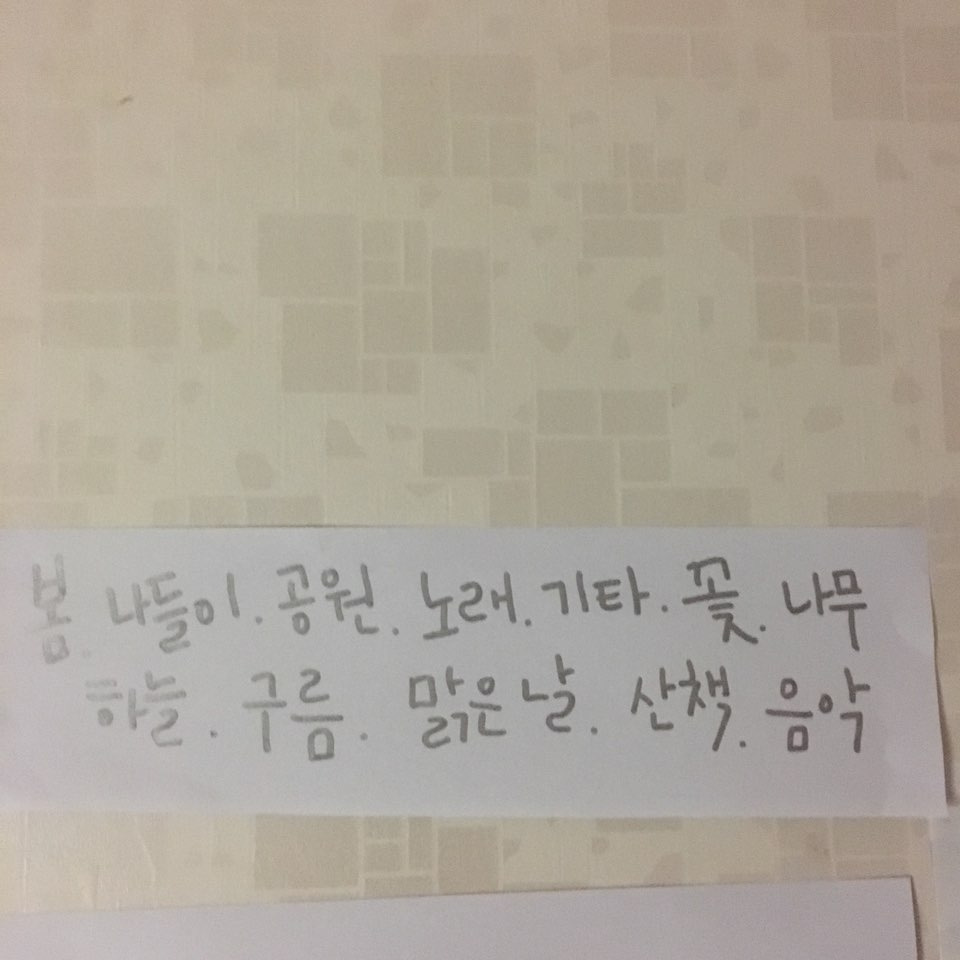 봄. 나들이. 공원. 노래. 기타. 꽃. 나무
하늘. 구름. 맑은 날. 산책. 음악